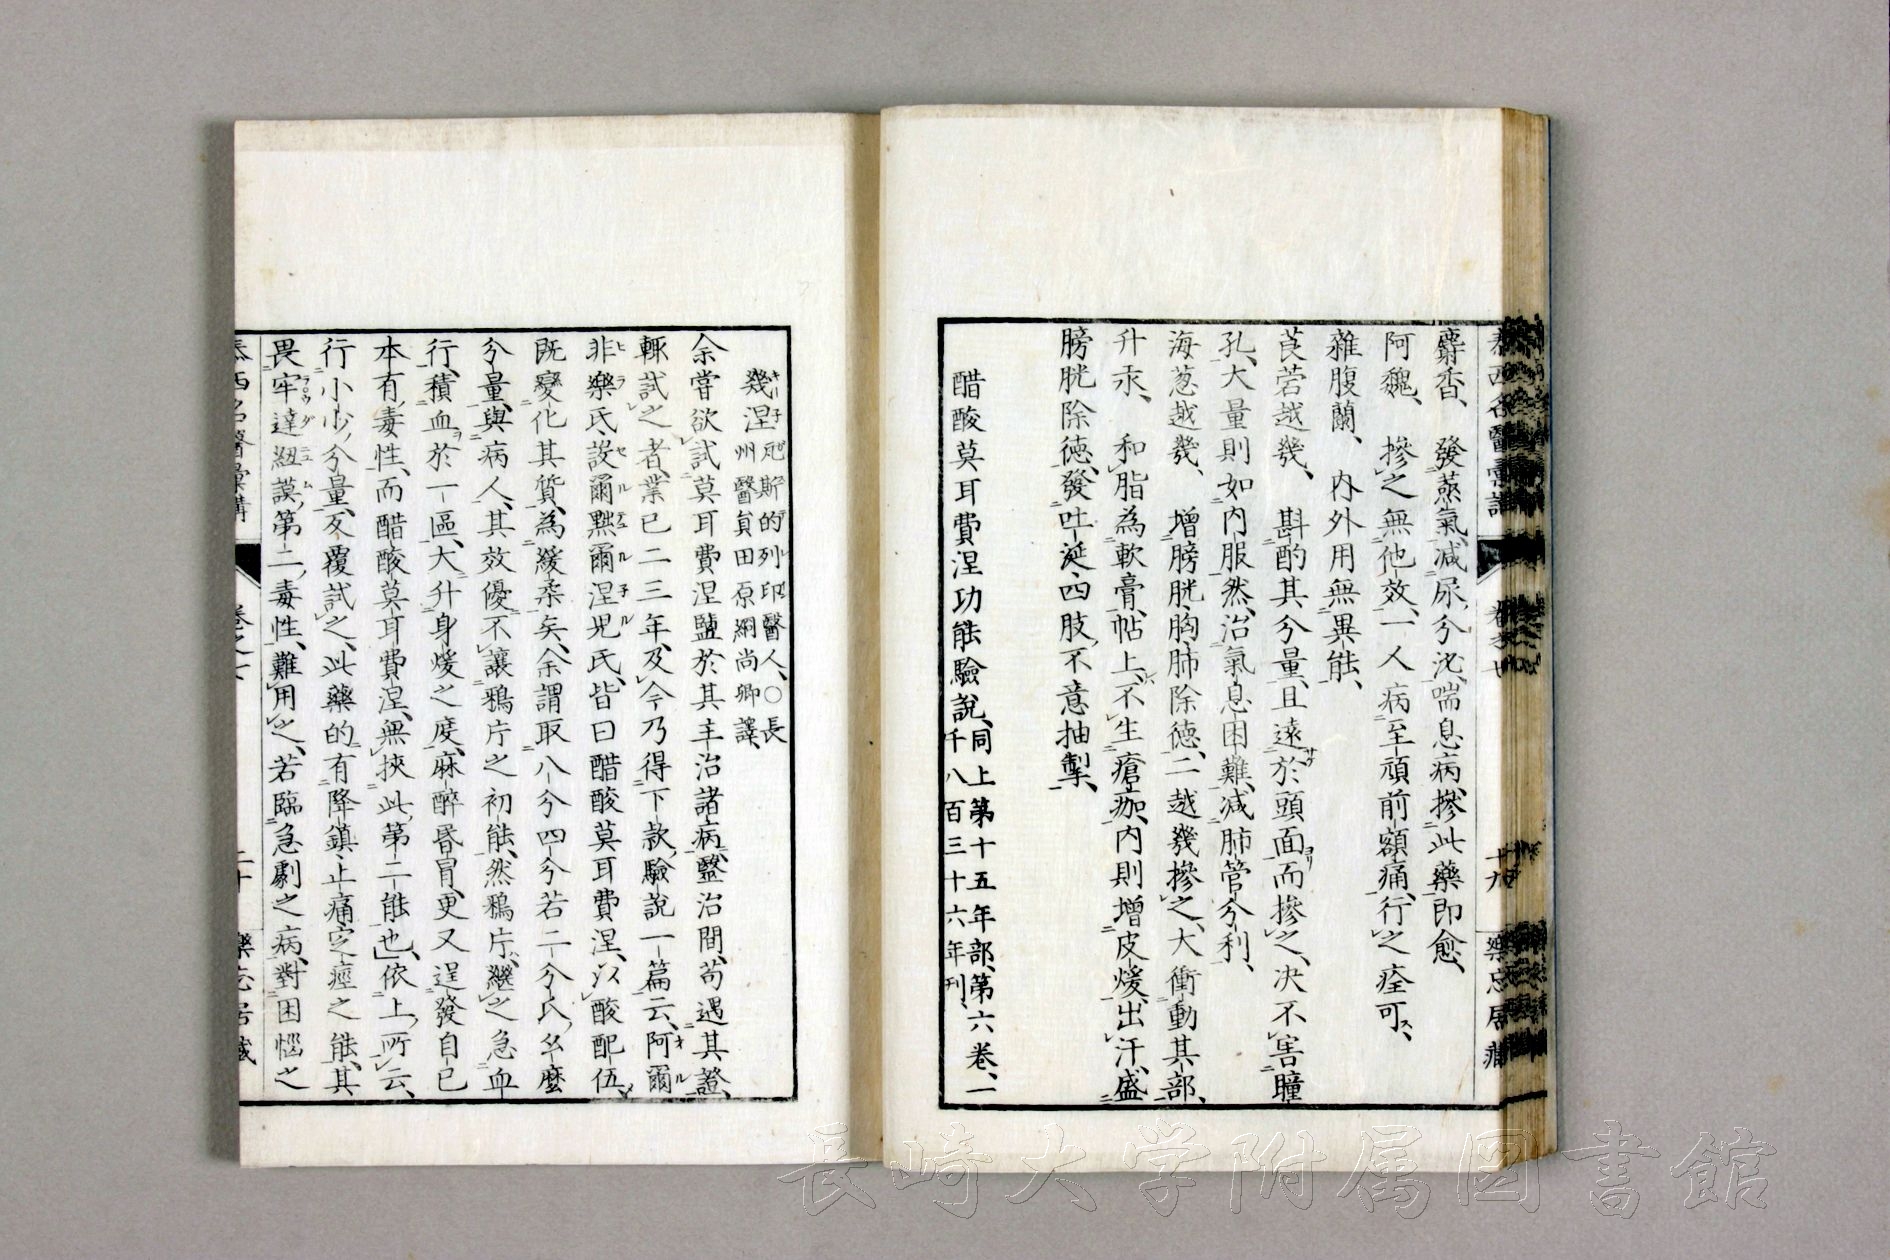 泰西名醫彙講 卷之七 十九 樂忘居藏
麝香、發蒸氣、減尿分泌、喘息病、摻此藥即愈、
阿魏、摻之無他效、一人病至頑前額痛、行之痊可、
雜腹蘭、內外用無異能、
莨菪越幾、斟酌其分量、且遠於頭面而摻之、决不害瞳
孔、大量則如內服然、治氣息困難、減肺管分利、
海葱越幾、增膀胱胸肺除德、二越幾摻之、大衝動其部、
升汞、和脂為軟膏、帖上、不生瘡痂、內則增皮煖、出汗、盛
膀胱除德、發吐涎、四肢不意抽掣、
醋酸莫耳費涅功能驗說、同上第十五年部、第六卷、一
千八百三十六年刊、
幾涅 瓲斯的列印醫人、○長
州醫員田原綱尚卿譯、
余嘗欲試莫耳費涅鹽於其主治諸病、鹽治間、苟遇其證、
輒試之者、業已二三年、及今乃得下款驗說一篇云、阿爾
非樂氏、設爾黙爾涅児氏、皆曰醋酸莫耳費涅、以酸配伍、
既變化其質、為緩柔矣、余謂取八分四分若二分氏、幺麼
分量、與病人、其效優不讓鴉片之初能、然鴉片、繼之急血
行、積血於一區、大升身煖之度、麻醉昏冒、更又逞發自己
本有毒性、而醋酸莫耳費涅、無挾此第二能也、依上所云、
行小少分量、反覆試之、此藥的有降鎮止痛定痙之能、其
畏牢達紐謨、第二毒性、難用之、若臨急劇之病、對困惱之
泰西名醫彙講 卷之七 二十 樂忘居藏
長崎大学附属図書館